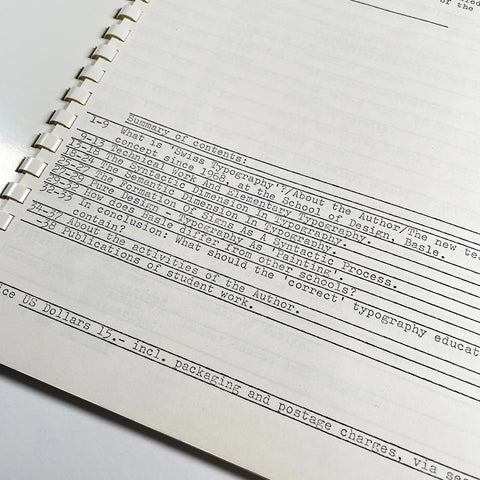 of the
Summary of contents:
1-9 What is 'Swiss Typography'?/About the Author/The new tea
concept since 1968, at the School of Design, Basle.
9-13 Technical Work And Elementary Typography.
13-18 The Syntactic Dimension in Typography.
The Semantic Dimension in Typography.
The Formation Of Signs As A Syntactic Process.
Pure Design - Typography As 'Painting'.
How does Basle differ from other schools?
32-33 In conclusion: What should the 'correct' typography educat
contain?
About the activities of the Author.
-38 Publications of student work.
ice US Dollars 15.- incl. packaging and postage charges, via sea